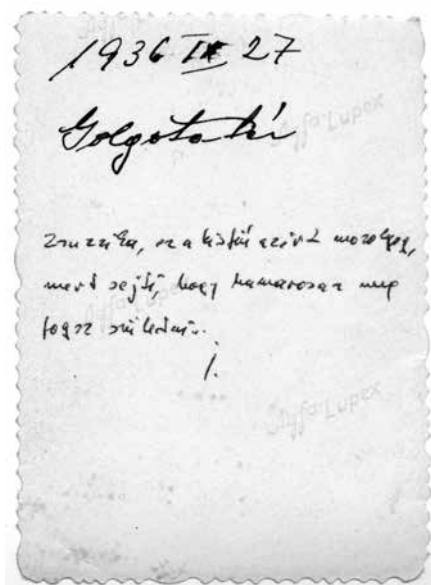 1936 IX 27
Golgota tér
Agfa-Lupex
Zsuzsika, ez a kisfiú azért mosolyog,
mert sejti, hogy hamarosan meg
fogsz születni.
J.
Agfa-Lupex